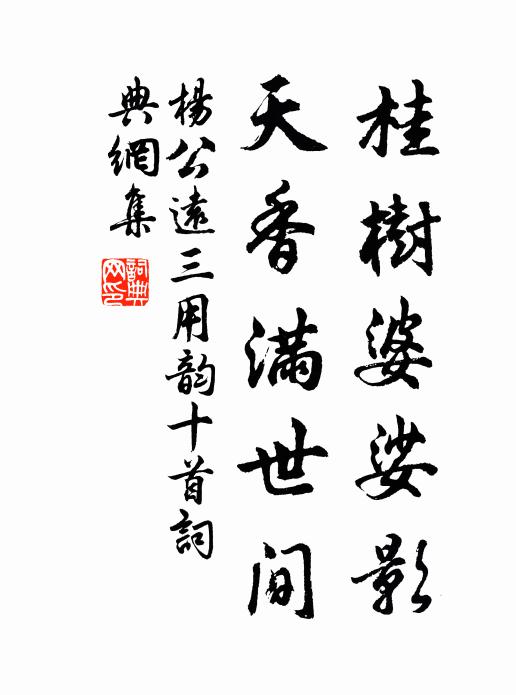 桂樹婆娑影
天香滿世間
楊公遠三用韵十首詞
典網集
詞典网印